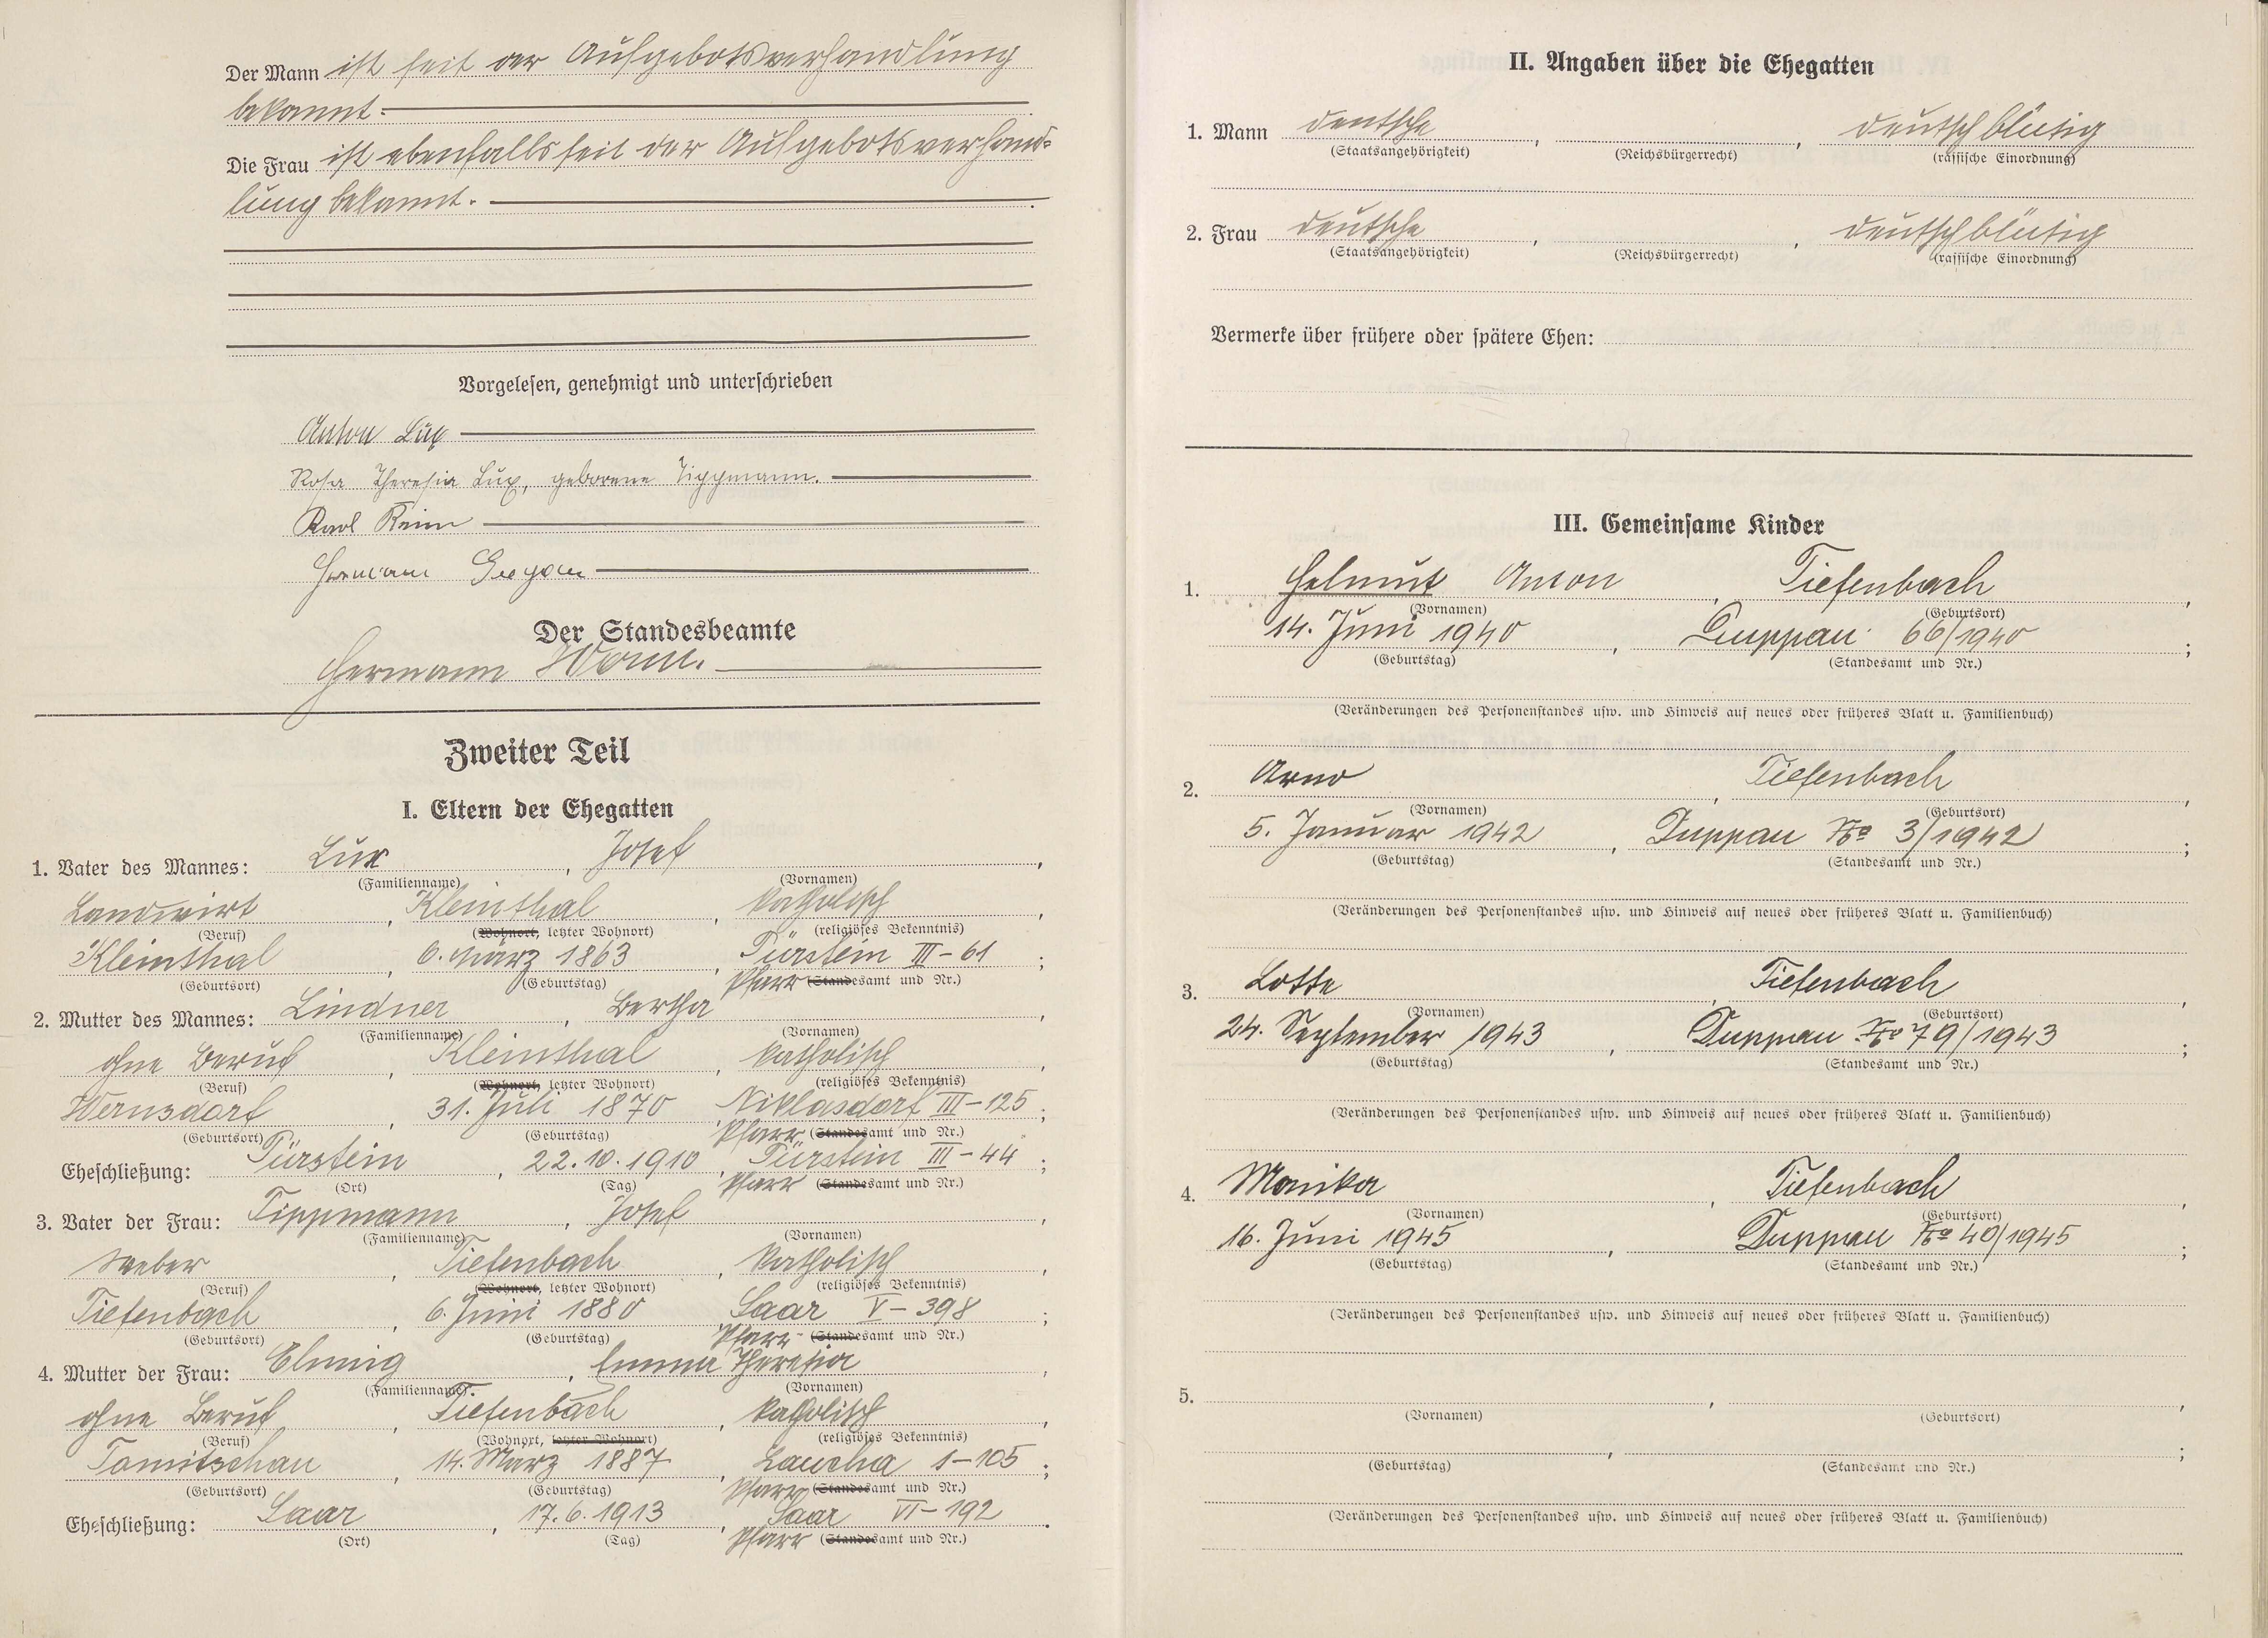 Der Mann ist seit der Aufgebotsverhandlung
bekannt.
Die Frau ist ebenfalls seit der Aufgebotsverhand-
lung bekannt.
Vorgelesen, genehmigt und unterschrieben
Anton Lux
Rosa Theresia Lux, geborene Tippmann.
Karl
Hermann
Der Standesbeamte
Hermann
Zweiter Teil
I. Eltern der Ehegatten
1. Vater des Mannes: Lux, Josef,
(Familienname) (Vornamen)
Landwirt, Kleinthal, katholisch,
(Beruf) (Wohnort, letzter Wohnort) (religiöses Bekenntnis)
Kleinsthal, 6. März 1863, Pürstein III-61;
(Geburtsort) (Geburtstag) Pfarr (Standesamt und Nr.)
2. Mutter des Mannes: Lindner, Bertha,
(Familienname) (Vornamen)
ohne Beruf, Kleinsthal, katholisch,
(Beruf) (Wohnort, letzter Wohnort) (religiöses Bekenntnis)
Wernsdorf, 31. Juli 1870, Niklasdorf III-125;
(Geburtsort) (Geburtstag) Pfarr (Standesamt und Nr.)
Eheschließung: Pürstein, 22.10.1910, Pürstein III-44;
(Ort) (Tag) Pfarr (Standesamt und Nr.)
3. Vater der Frau: Tippmann, Josef,
(Familienname) (Vornamen)
Weber, Tiefenbach, katholisch,
(Beruf) (Wohnort, letzter Wohnort) (religiöses Bekenntnis)
Tiefenbach, 6. Juni 1880, Saar V-398;
(Geburtsort) (Geburtstag) Pfarr- (Standesamt und Nr.)
4. Mutter der Frau: Elmig, Emma Theresia,
(Familienname) (Vornamen)
ohne Beruf, Tiefenbach, katholisch,
(Beruf) (Wohnort, letzter Wohnort) (religiöses Bekenntnis)
Tomitschau, 14. März 1887, Laucha 1-105;
(Geburtsort) (Geburtstag) Pfarr (Standesamt und Nr.)
Eheschließung: Saar, 17.6.1913, Saar VI-192.
(Ort) (Tag) Pfarr (Standesamt und Nr.)
II. Angaben über die Ehegatten
1. Mann deutsche, , deutschblütig
(Staatsangehörigkeit) (Reichsbürgerrecht) (rassische Einordnung)
2. Frau deutsche, , deutschblütig
(Staatsangehörigkeit) (Reichsbürgerrecht) (rassische Einordnung)
Vermerke über frühere oder spätere Ehen:
III. Gemeinsame Kinder
1. Helmut Anton, Tiefenbach,
(Vornamen) (Geburtsort)
14. Juni 1940, Duppau 66/1940;
(Geburtstag) (Standesamt und Nr.)
(Veränderungen des Personenstandes usw. und Hinweis auf neues oder früheres Blatt u. Familienbuch)
2. Arno, Tiefenbach,
(Vornamen) (Geburtsort)
5. Januar 1942, Duppau No 3/1942;
(Geburtstag) (Standesamt und Nr.)
(Veränderungen des Personenstandes usw. und Hinweis auf neues oder früheres Blatt u. Familienbuch)
3. Lotte, Tiefenbach,
(Vornamen) (Geburtsort)
24. September 1943, Duppau No 79/1943;
(Geburtstag) (Standesamt und Nr.)
(Veränderungen des Personenstandes usw. und Hinweis auf neues oder früheres Blatt u. Familienbuch)
4. Monika, Tiefenbach,
(Vornamen) (Geburtsort)
16. Juni 1945, Duppau No 40/1945;
(Geburtstag) (Standesamt und Nr.)
(Veränderungen des Personenstandes usw. und Hinweis auf neues oder früheres Blatt u. Familienbuch)
5. , ,
(Vornamen) (Geburtsort)
, ;
(Geburtstag) (Standesamt und Nr.)
(Veränderungen des Personenstandes usw. und Hinweis auf neues oder früheres Blatt u. Familienbuch)